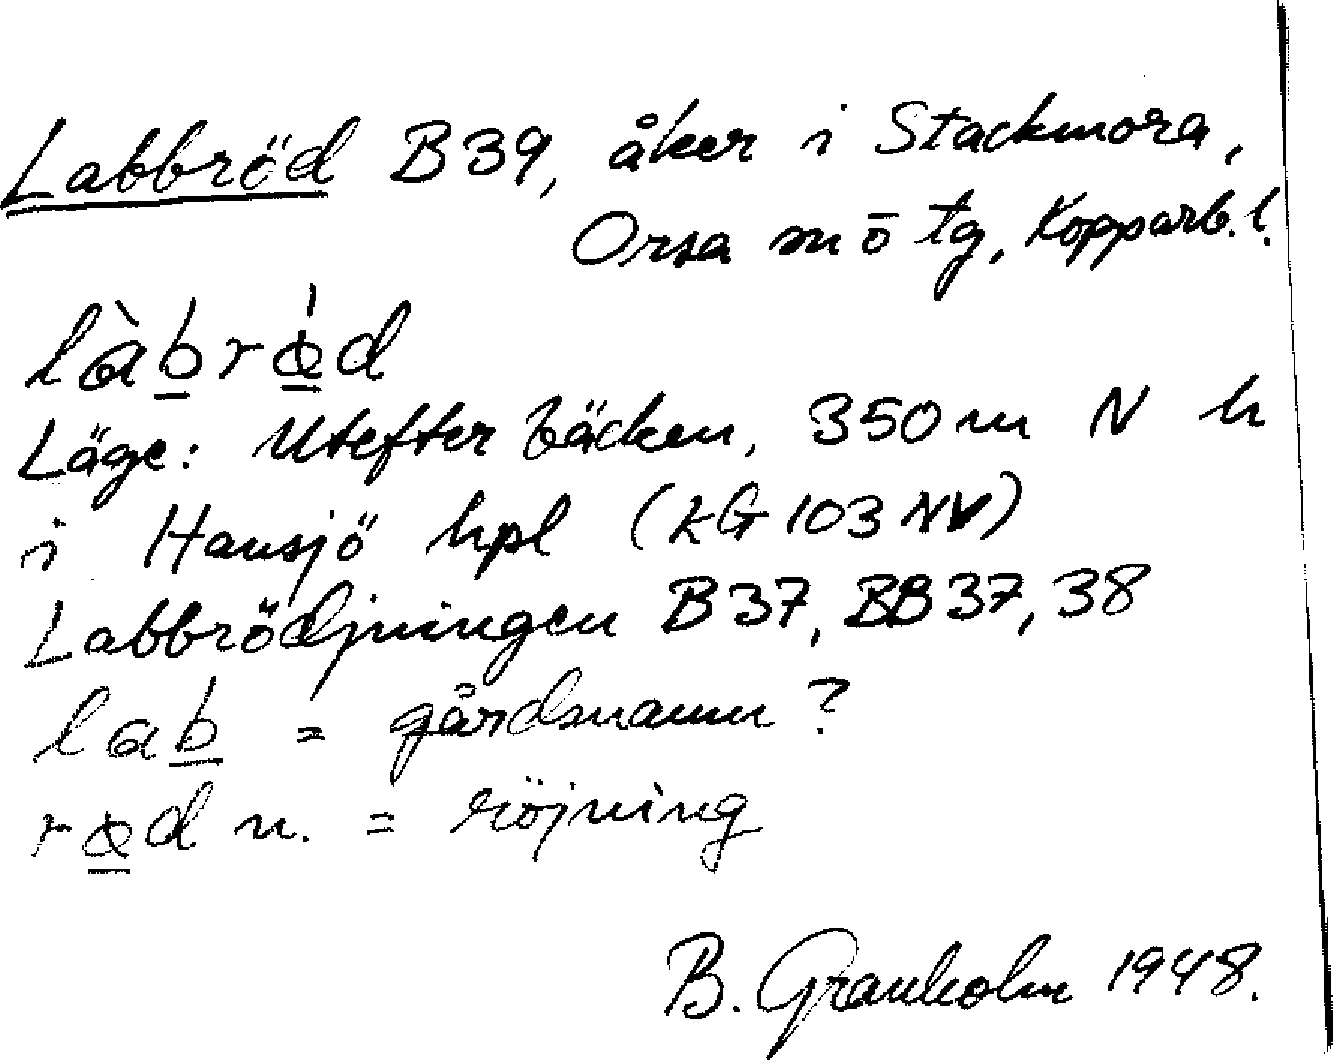 Labbröd B39, åker i Stackmora,
Orsa m ō tg, Kopparb. l.
làb̲rø̲̍d
Läge: Utefter bäcken, 350 m N h
i Hansjö hpl (kG 103 NV)
Labbrödjningen B37, BB37, 38
lab̲ = gårdsnamn ?
rø̲d n. = röjning
B. Granholm 1948.